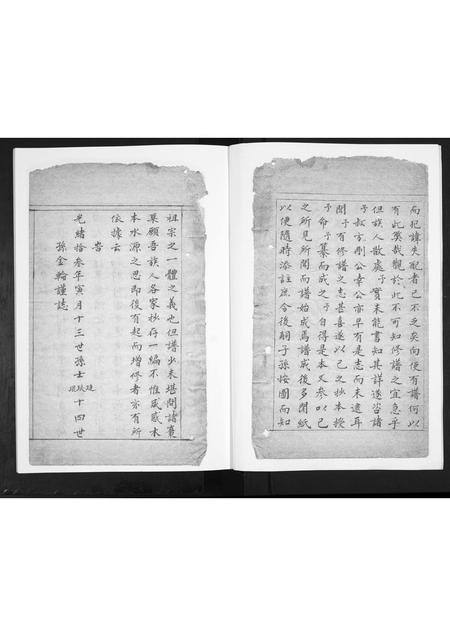 而犯諱失配者已不乏矣向使有譜何以
有此奠哉觀於此不可知修譜之宜急乎
但族人散處予實未能書知其詳遂咨諸
予叔方剛公幸公亦早有是志而未遑耳
聞予有修譜之志甚喜遂以己之抄本授
予命予纂而成之予自得是本又參以己
之所見所聞而譜始成焉譜成後多閒紙
以便隨時添註庶令後嗣子孫按圖而知
祖宗之一體之義也但譜出未堪問諸棗
菓願吾族人各家抄存一編不惟咸感木
本水源之思即後有起而增修者亦有所
依據云
光緒拾叁年寅月十三世孫士 十四世
孫金輪謹誌